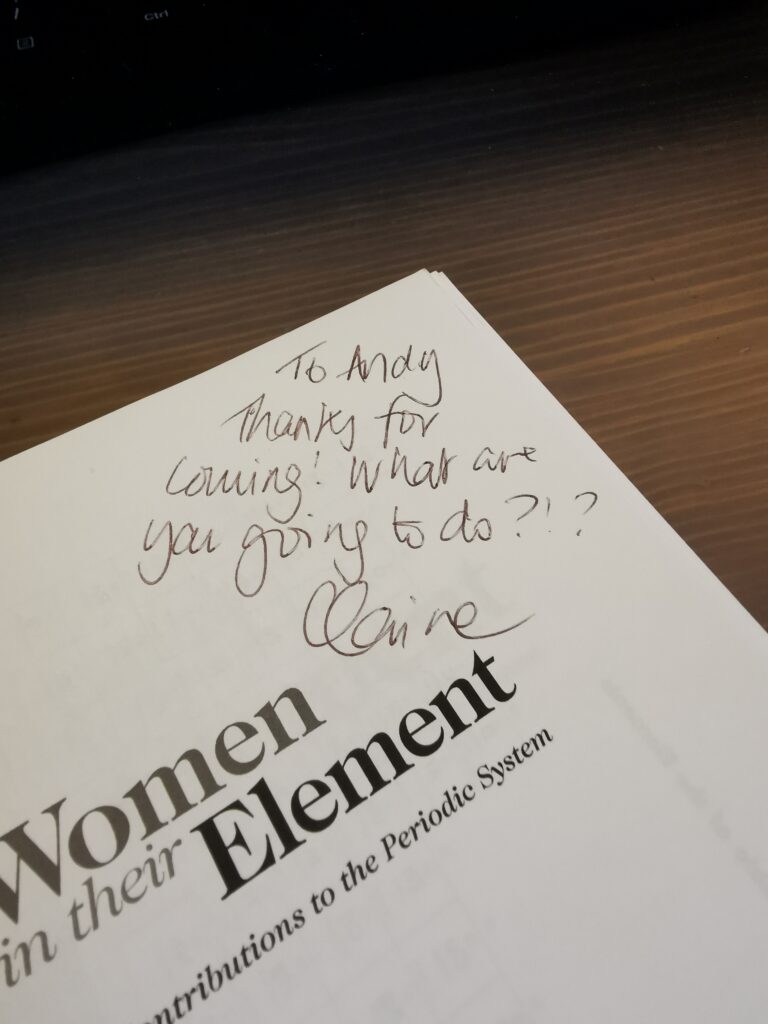 Ctrl
To Andy
Thanks for
coming! What are
you going to do?!?
Claire
Women
in their Element
Contributions to the Periodic System